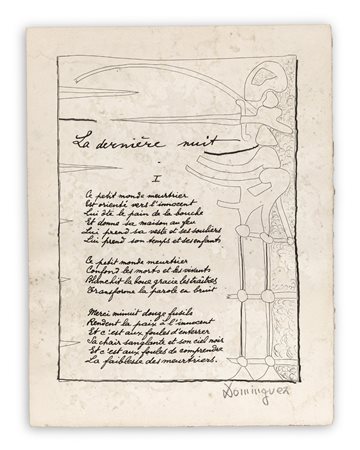 La dernière nuit
I
Ce petit monde meurtrier
Est orienté vers l'innocent
Lui ôte le pain de la bouche
Et donne sa maison au feu
Lui prend sa veste et ses souliers
Lui prend son temps et ses enfants
Ce petit monde meurtrier
Confond les morts et les vivants
Blanchit la boue gracie les traîtres
Transforme la parole en bruit
Merci minuit douze fusils
Rendent la paix à l'innocent
Et c'est aux foules d'enterrer
Sa chair sanglante et son ciel noir
Et c'est aux foules de comprendre
La faiblesse des meurtriers.
Dominguez